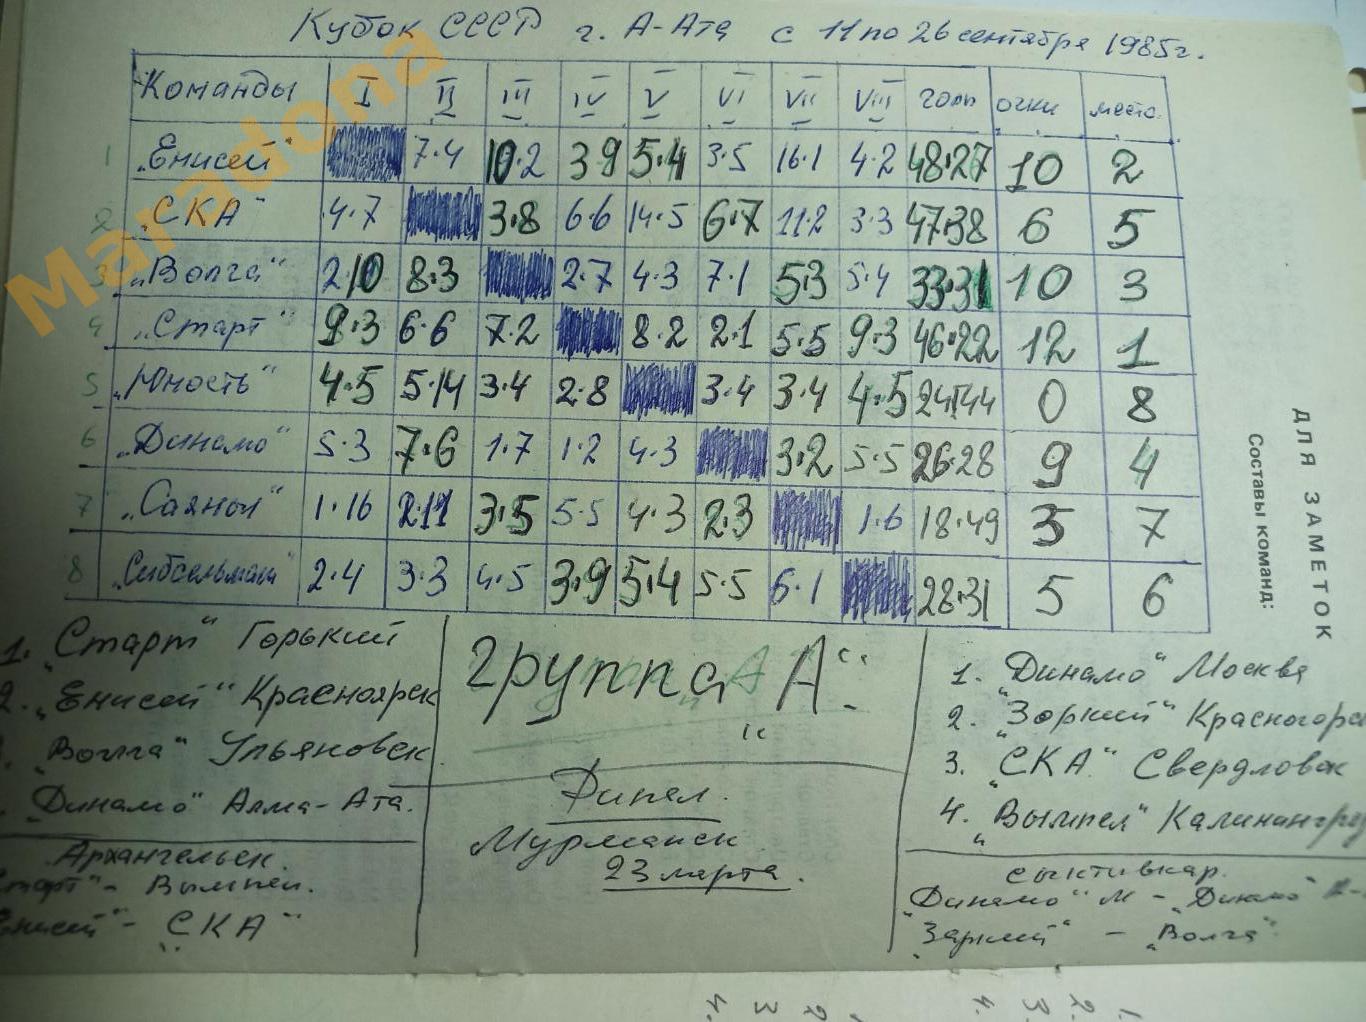 Кубок СССР г. А-Ата с 11 по 26 сентября 1985г.
Команды I II III IV V VI VII VIII голы очки место
1 „Енисей" 7·4 10·2 3 9 5·4 3·5 16·1 4·2 48·27 10 2
2 „СКА" 4·7 3·8 6·6 14·5 6·7 11·2 3·3 47·38 6 5
3 „Волга" 2·10 8·3 2·7 4·3 7·1 5·3 5·4 33·31 10 3
4 „Старт" 9·3 6·6 7·2 8·2 2·1 5·5 9·3 46·22 12 1
5 „Юность" 4·5 5·14 3·4 2·8 3·4 3·4 4·5 24·44 0 8
6 „Динамо" 5·3 7·6 1·7 1·2 4·3 3·2 5·5 26·28 9 4
7 „Саяны" 1·16 2·11 3·5 5·5 4·3 2·3 1·6 18·49 3 7
8 „Сибсельмаш" 2·4 3·3 4·5 3·9 5·4 5·5 6·1 28·31 5 6
1. „Старт" Горький
2. „Енисей" Красноярск
„Волга" Ульяновск
„Динамо" Алма-Ата.
Архангельск.
Старт" - Вымпел.
Енисей" - „СКА"
Группа „А"
Финал.
Мурманск
23 марта.
1. „Динамо" Москва
2. „Зоркий" Красногорс
3. „СКА" Свердловск
4. „Вымпел" Калининград
Сыктывкар.
„Динамо" М - „Динамо"
„Зоркий" - „Волга"
ДЛЯ ЗАМЕТОК
Составы команд:
Maradona
1.
2.
3.
4.
2
3
4.